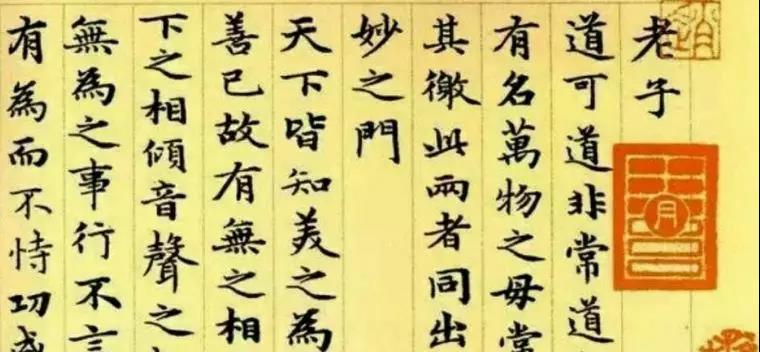 老子
道可道非常道
有名萬物之母常
其徼此兩者同出
妙之門
天下皆知美之為
善已故有無之相
下之相傾音聲之
無為之事行不言
有為而不恃功成